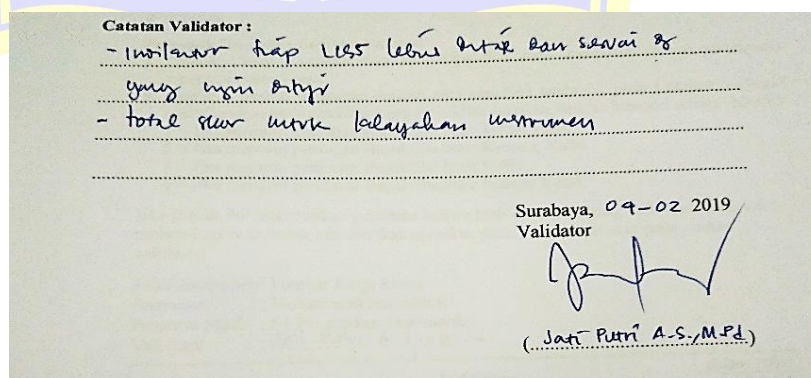 Catatan Validator :
- Indikator tiap lebih dan sesuai dg
yang ingin
- total skor untuk kelayakan instrumen
Surabaya, 04-02 2019
Validator
( Jati Putri A.S., M.Pd )